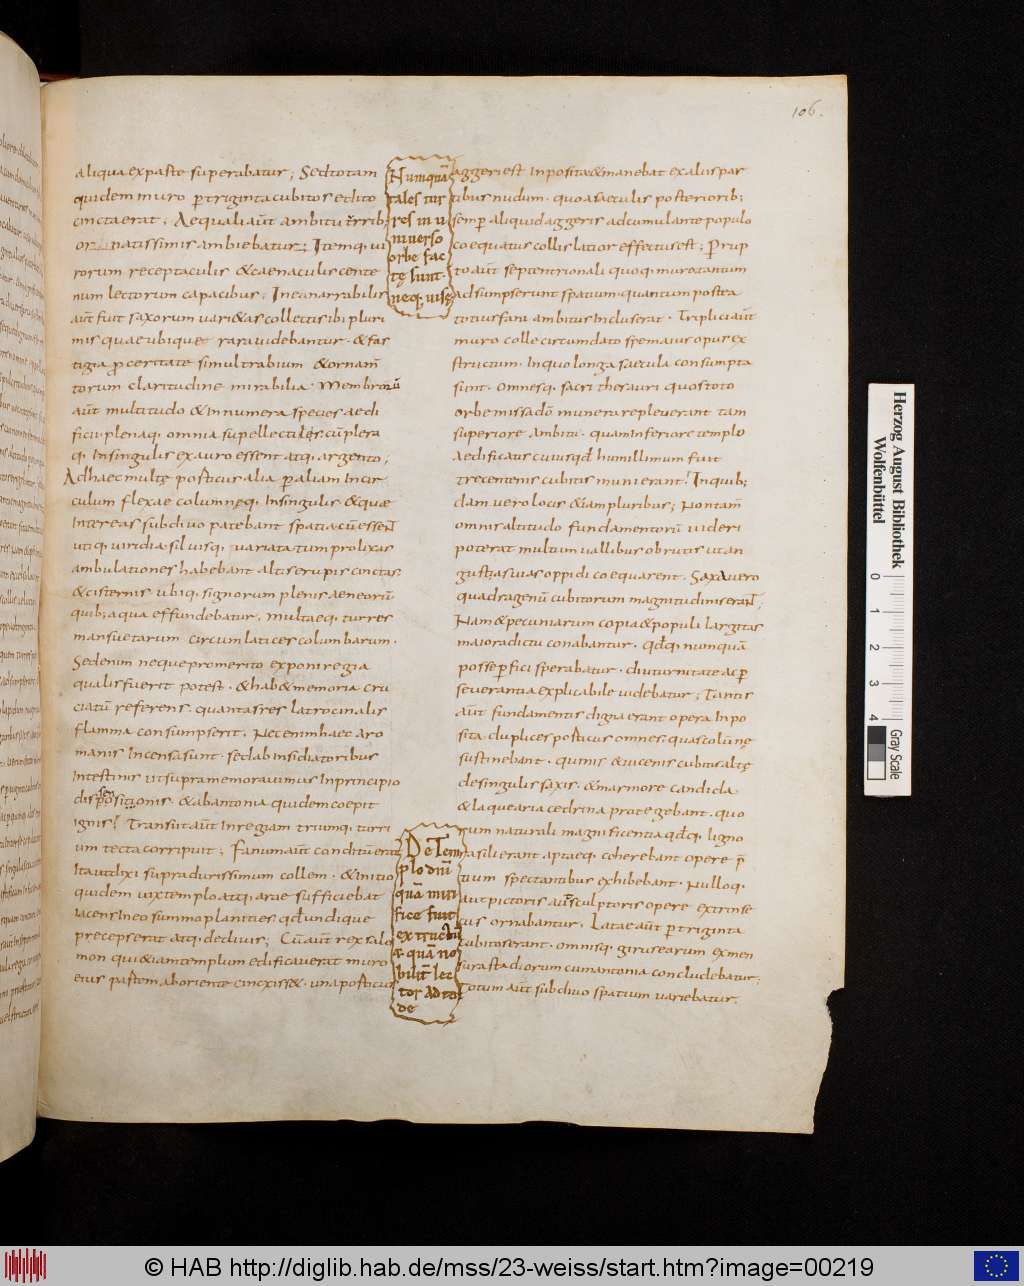 106.
aliqua ex paste superabatur; Sed totam
quidem muro p̄ triginta cubitos edito
cincta erat; Aequali aūt ambitu
patissimis ambiebatur; Itemq; vi
rorum receptaculis & caenaculis cente
num lectorum capacibus; Inenarrabilis
aūt fuit saxorum vari&as collectis ibi pluri
mis quae ubique rara videbantur. & fas
tigia p̄ceritate simul trabium & ornam̄
torum claritudine mirabilia. Membrorū
aūt multitudo & innumera species aedi
ficii plenaq; omnia supellectilis cū plera
q; In singulis ex auro essent. atq; argento;
Ad haec multę posticus alia p̄ aliam In cir
culum flexae columnęq; In singulis & quae
Inter eas sub divo patebant spatia cū essen̄
utiq; viridia. silvisq; variata. tum prolixas
ambulationes habebant altis eurupis cinctas
& cisternis ubiq; signorum plenis aeneorū
quib; aqua effundebatur. multaeq; turres
mansuetarum circum latices columbarum.
Sed enim neque pro merito exponi regia
qualis fuerit potest. & hab& memoria cru
ciatū referens. quantas res latrocinalis
flamma consumpserit. Nec enim haec Ro
manis Incensa sunt. sed ab Insidiatoribus
Intestinis ut supra memoravimus In principio
dispositionis & ab antonia quidem coepit
ignis. Transiit aūt In regiam triumq; turri
um tecta corripuit; Fanum aūt conditū erat
Ita ut dixi supra durissimum collem. & initio
quidem vix templo atq; arae sufficiebat
Iacens In eo summo planities qd̄ undique
praeceps erat atq; declivis; Cū aūt rex salo
mon qui & iam templum edificaverat muro
eius partem ab oriente cinxiss&. una posticus
Numquā
tales tur
res in u
niverso
orbe fac
tę sunt
neq; visę
De Tem
plo dn̄i
quā miri
fice fuit
extructū
& quā no
bilit̄ lec
tor adto
de
aggeri est In posita & manebat ex aliis par
tibus nudum. quo ad saeculis posteriorib;
semp̄ aliquid aggeris adcumulante populo
coequatus collis latior effectus est; P̄rup
to aūt septentrionali quoq; muro tantum
adsumpserunt spatium. quantum postea
totius fani ambitus Incluserat. Triplici aūt
muro colle circumdato spe maius opus ex
structum. In quo longa saecula consumpta
sunt. omnesq; sacri thesauri quos toto
orbe missa dō munera repleverant tam
superiore ambitu. quam Inferiore templo
Aedificato cuius qd̄ humillimum fuit
trecentenis cubitis munierant. In quib;
dam vero locis & iam pluribus; Non tam̄
omnis altitudo fundamentorū videri
poterat multum vallibus obrutis ut an
gustias vias oppidi coequarent. Saxa vero
quadragenū cubitorum magnitudinis eran̄t;
Nam & pecuniarum copia & populi largitas
maiora dictu conabantur. qd̄q; numquā
posse p̄fici sperabatur. diuturnitate ac p̄
severantia explicabile videbatur; Tantis
aūt fundamentis digna erant opera In po
sita. duplices posticus omnes. quas colūnę
sustinebant. quinis & vicenis cubitis altę
de singulis saxis. & marmore candida
& laquearia cedrina protegebant. quo
rum naturali magnificentia qd̄q; ligno
rasili erant. aptaeq; coherebant opere p̄
tium spectantibus exhibebant. Nulloq;
aut pictoris aut sculptoris opere extrinse
cus ornabantur. Latae aūt p̄ triginta
cubitos erant. omnisq; girus earum ex men
sura stadiorum cum antonia concludebatur;
Totum aūt sub divo spatium variebatur.
Herzog August Bibliothek
Wolfenbüttel
0 1 2 3 4
Gray Scale
© HAB http://diglib.hab.de/mss/23-weiss/start.htm?image=00219